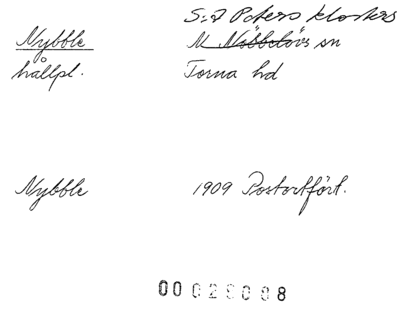 S:t Peters klosters
Nybble N. Nöbbelövs sn
hållpl. Torna hd
Nybble 1909 Postortfört.